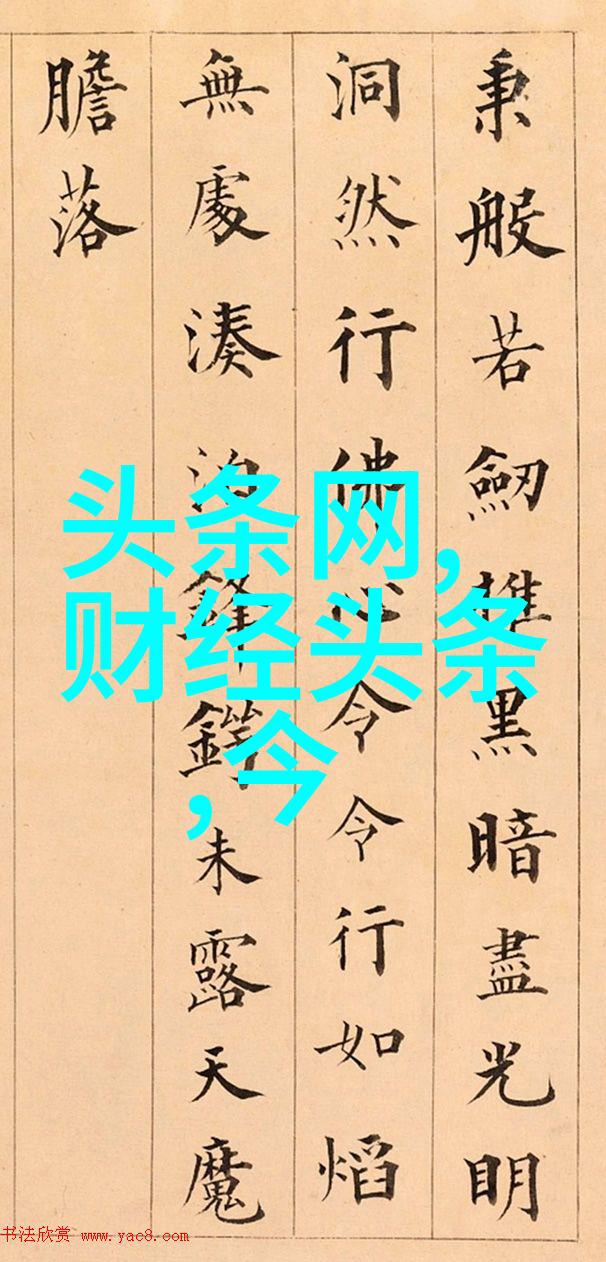 秉般若劒摧黑暗盡光明
洞然行佛心令令行如熖
無處湊泊鋒鍔未露天魔
膽落
头条网,
财经头条
,今
书法欣赏 www.yac8.com